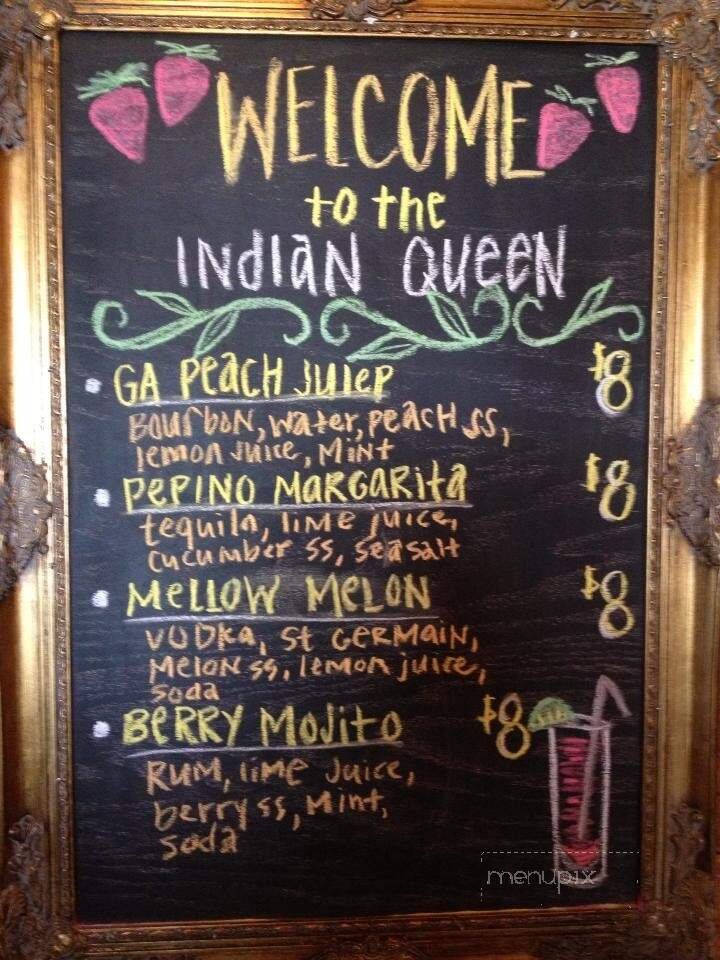 WELCOME
to the
INDIAN QUEEN
GA PEACH JULEP $8
BOURBON, Water, PEACH SS,
lemon Juice, MINT
PEPINO MARGARITA $8
tequila, lime juice,
cucumber SS, sea salt
MELLOW MELON $8
VODKA, St GERMAIN,
MELON SS, lemon juice,
soda
BERRY MOJITO $8
RUM, lime Juice,
berry SS, Mint,
soda
menupix